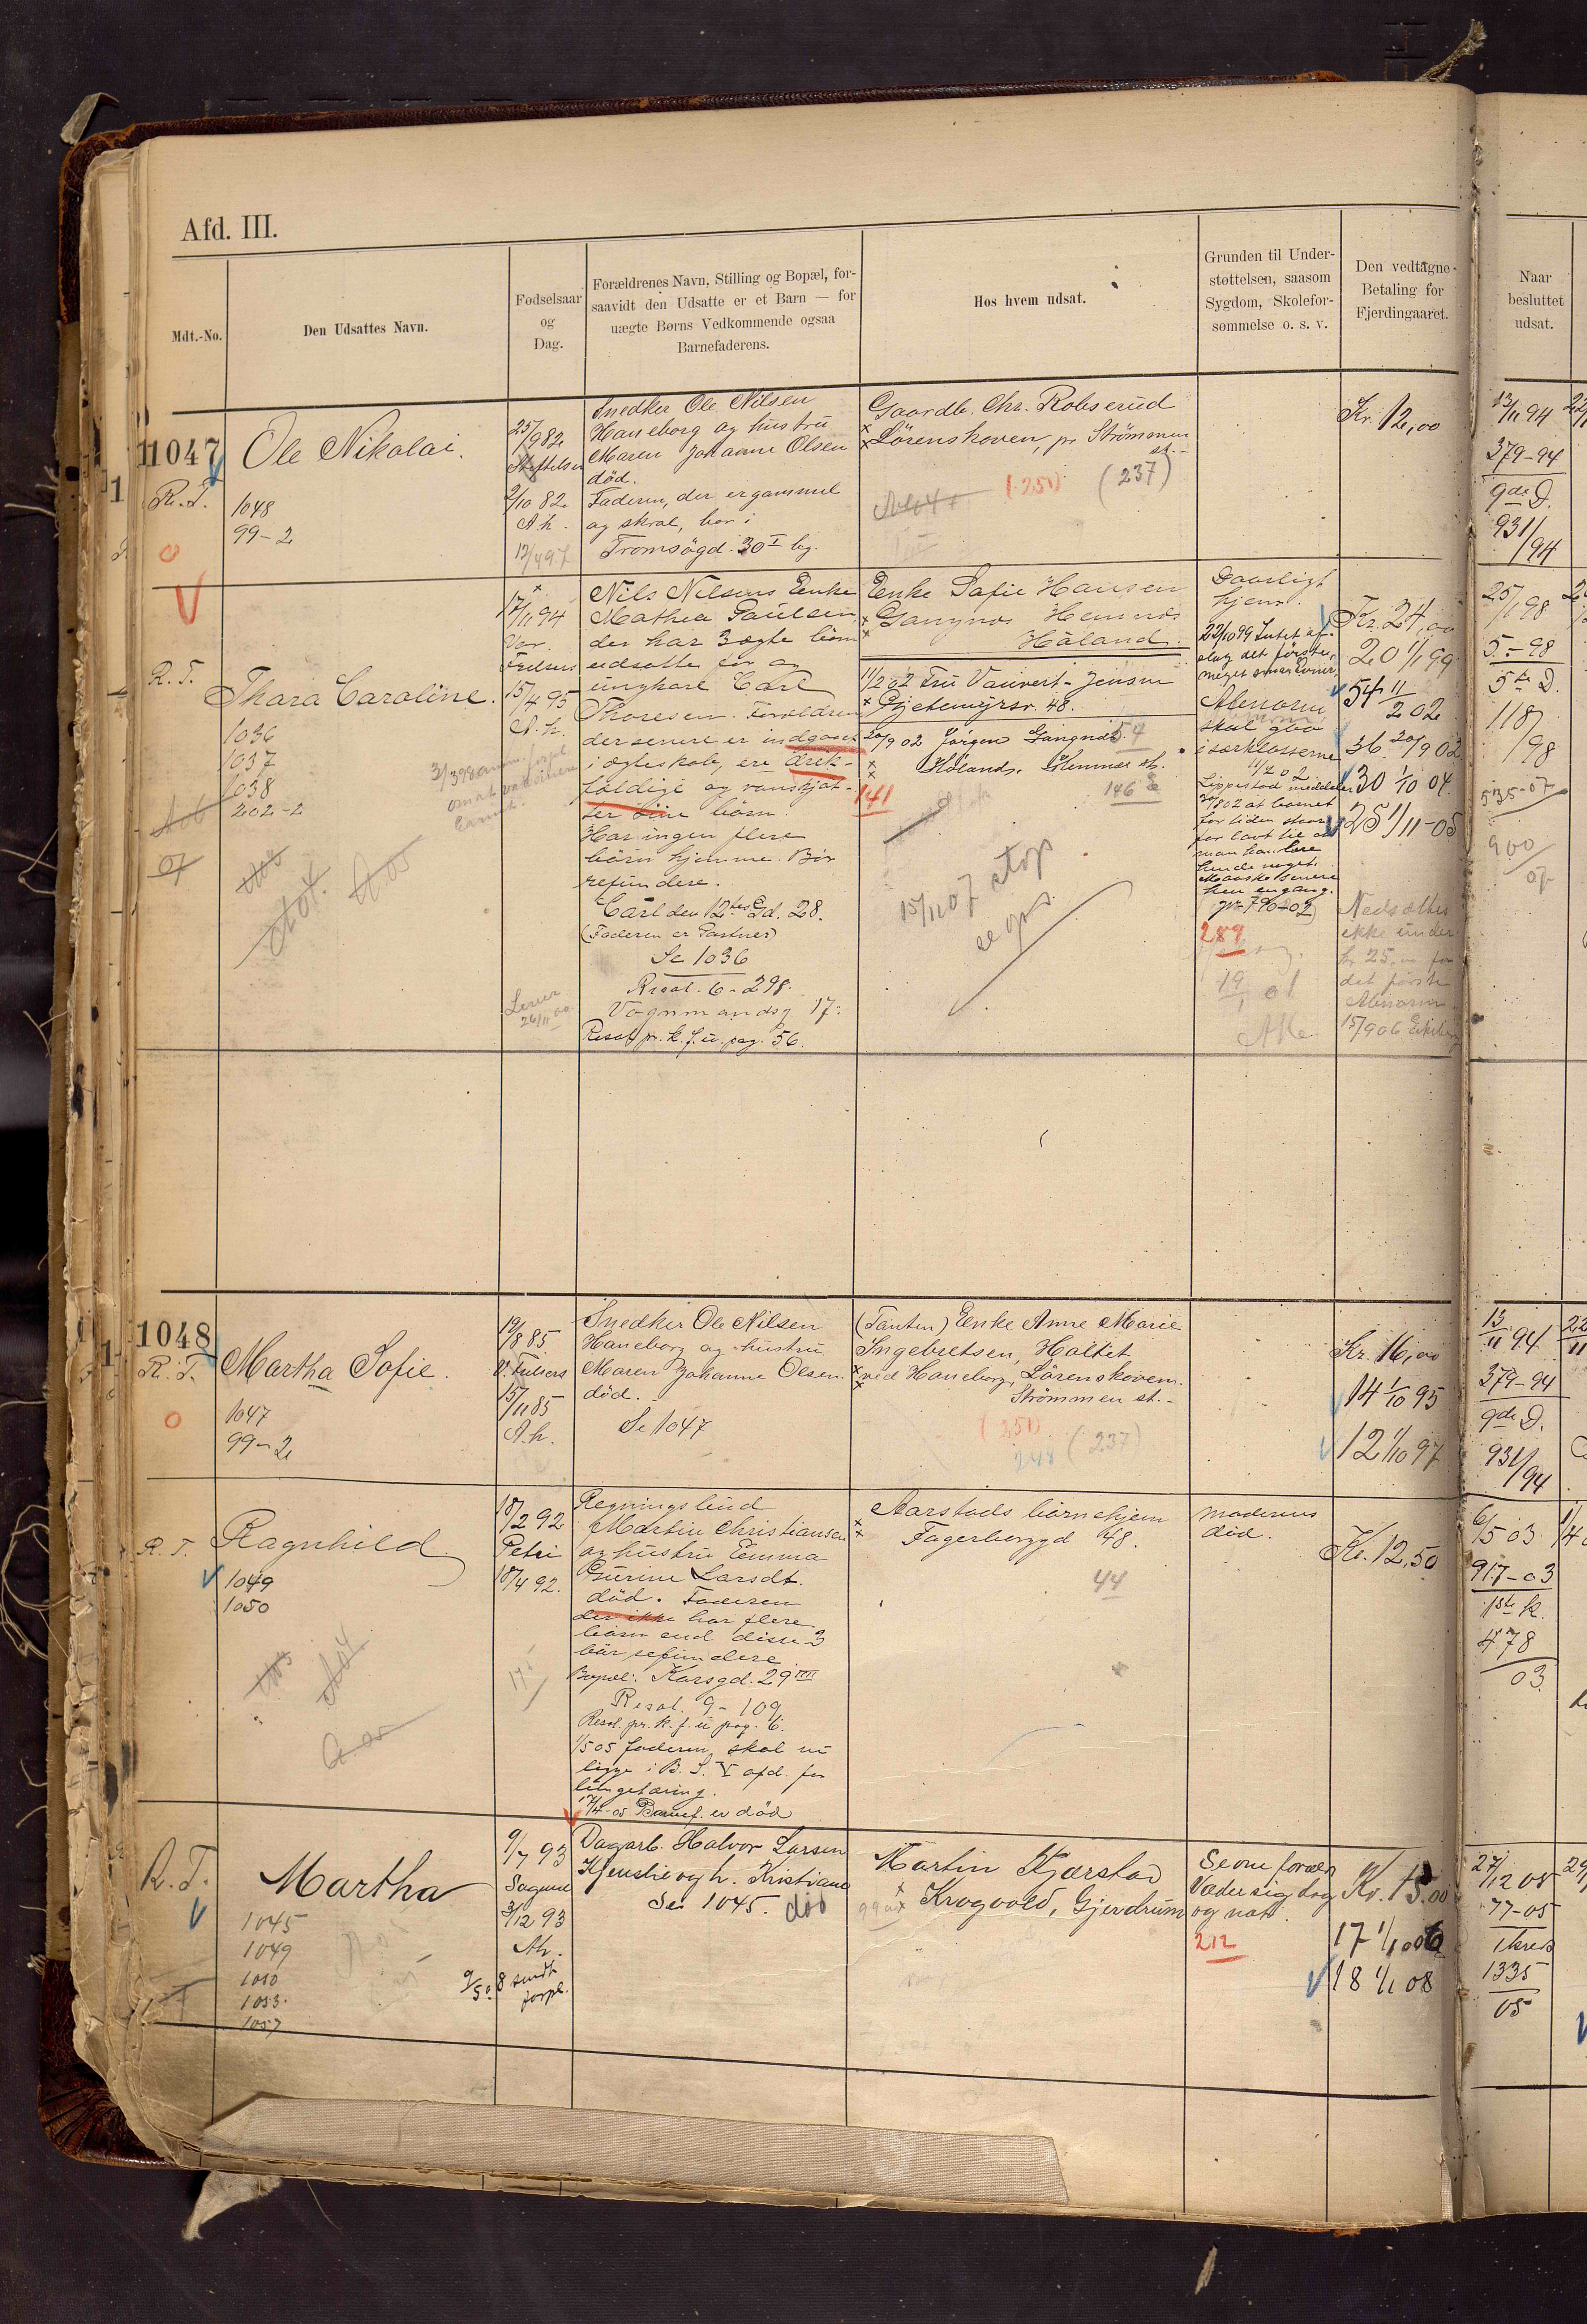 Afd. III.
Mdt.-No.
Den Udsattes Navn.
Fødselsaar
og
Dag.
Forældrenes Navn, Stilling og Bopæl, for-
saavidt den Udsatte er et Barn — for
uægte Børns Vedkommende ogsaa
Barnefaderens.
Hos hvem udsat.
Grunden til Under-
støttelsen, saasom
Sygdom, Skolefor-
sømmelse o. s. v.
Den vedtagne
Betaling for
Fjerdingaaret.
Naar
besluttet
udsat.
1047
R. T.
Ole Nikolai.
1048
99-2
25/9 82
2/10 82
A.h.
Snedker Ole Nilsen
Haneborg og hustru
Maren Johanne Olsen
död.
Faderen, der er gammel
og skral, bor i
Tromsögd. 30 I bg.
Gaardb. Chr. Robserud
Lörenskoven, pr Strömmen
st.-
(251)
(237)
Kr. 12,00
13/11 94
379-94
9de D.
931/94
R. T.
Thara Caroline.
1036
1037
1038
202-2
17/11 94
Vor
Frelsers
15/4 95
A.h.
Nils Nilsens Enke
Mathea Paulsen
der har 3 ægte börn
udsatte för og
ungkarl Carl
Thoresen. Foreldren
der senere er indgaaet
i ægteskab, ere drik-
fældige og vanskjöt-
ter sine börn.
Har ingen flere
börn hjemme. Bör
refundere.
Carl den 12tes Gd. 28.
(Faderen er Gartner)
Se 1036
Resol. 6-298.
Vognmandsg 17.
Resol pr. k. f. u. pag. 56.
Enke Sofie Hansen
Gangnæs Hemnæs
Höland.
11/2 02 Fru Vauvert-Jensen
Gjetemyrsv. 48.
54
20/9 02 Jörgen Gangnæs
Höland. Hemnæs st.
141
146
15/11 07 stop
se opr.
Daarligt
hjem.
22/10 99 Intet af-
slag det förste,
Abnorm
skal gaa
i særklasserne
11/2 02
Lippestad meddeler
30/8 02 at barnet
for tiden staar
for lavt til at
man kan lære
hende noget.
Maaske senere
hen engang.
gr 790-02
289
19/1 01
Kr. 24,00
20 1/1 99
54 11/2 02
36 20/9 02
30 1/10 04
25 1/11-05
Nedsættes
ikke under
kr 25,00 for
det første
Abnorm
15/9 06
25/1 98
5.-98
5te D.
118/98
535-07
900/07
1048
R. T.
Martha Sofie.
1047
99-2
19/8 85
V. Frelsers
15/11 85
A.h.
Snedker Ole Nilsen
Haneborg og hustru
Maren Johanne Olsen
död.
Se 1047
(Tanten) Enke Anne Marie
Ingebretsen, Holtet
ved Haneborg, Lörenskoven.
Strömmen st.-
(251)
248 (237)
Kr. 16,00
14 1/10 95
12 1/10 97
13/11 94
379-94
9de D.
931/94
R. T.
Ragnhild
1049
1050
18/2 92
Petri
18/4 92.
Regningsbud
Martin Christiansen
og hustru Emma
Gurine Larsdt.
död. Faderen
der ikke har flere
börn end disse 3
bör refundere
Bopæl: Korsgd. 29 III
Resol. 9-109
Resol. pr. k. f. u pag. 6.
1/5 05 faderen skal nu
ligge i B. S. V afd. for
lungetæring.
17/4-05 Barnef. er död
Aarstads börnehjem
Fagerborggd 48.
44
moderens
död.
Kr. 12,50
6/5 03
917-03
1ste k.
478/03
R. T.
Martha
1045
1049
1050
1053
1057
9/7 93
Sagene
3/12 93
Ah.
9/5 08 sendt
forpl.
Dagarb. Halvor Larsen
Kjenslie og h. Kristiane
Se 1045. död
Martin Kjærstad
Krogvold, Gjerdrum
212
Kr. 15.00
17 1/10 06
18 1/1 08
27/12 05
77-05
1 kreds
1335/05